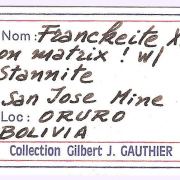 Nom: Franckeite X
on matrix ! w/
Stannite
San Jose Mine
Loc: ORURO
BOLIVIA
Collection Gilbert J. GAUTHIER